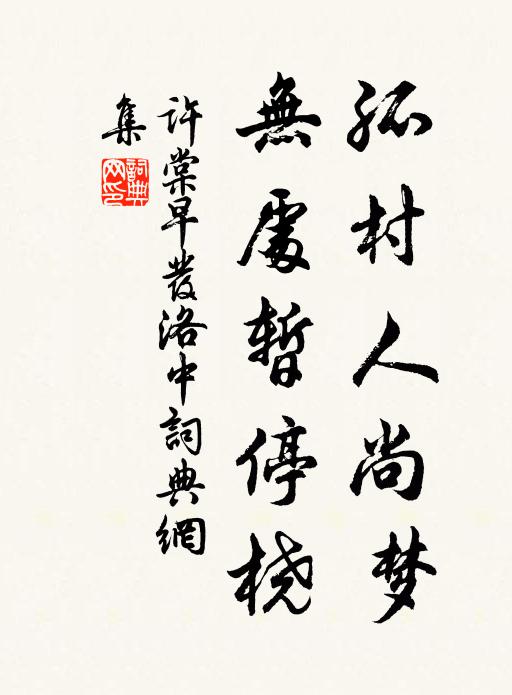 孤村人尚梦
無處暫停桡
许棠早發洛中詞典網
集
詞典
网印